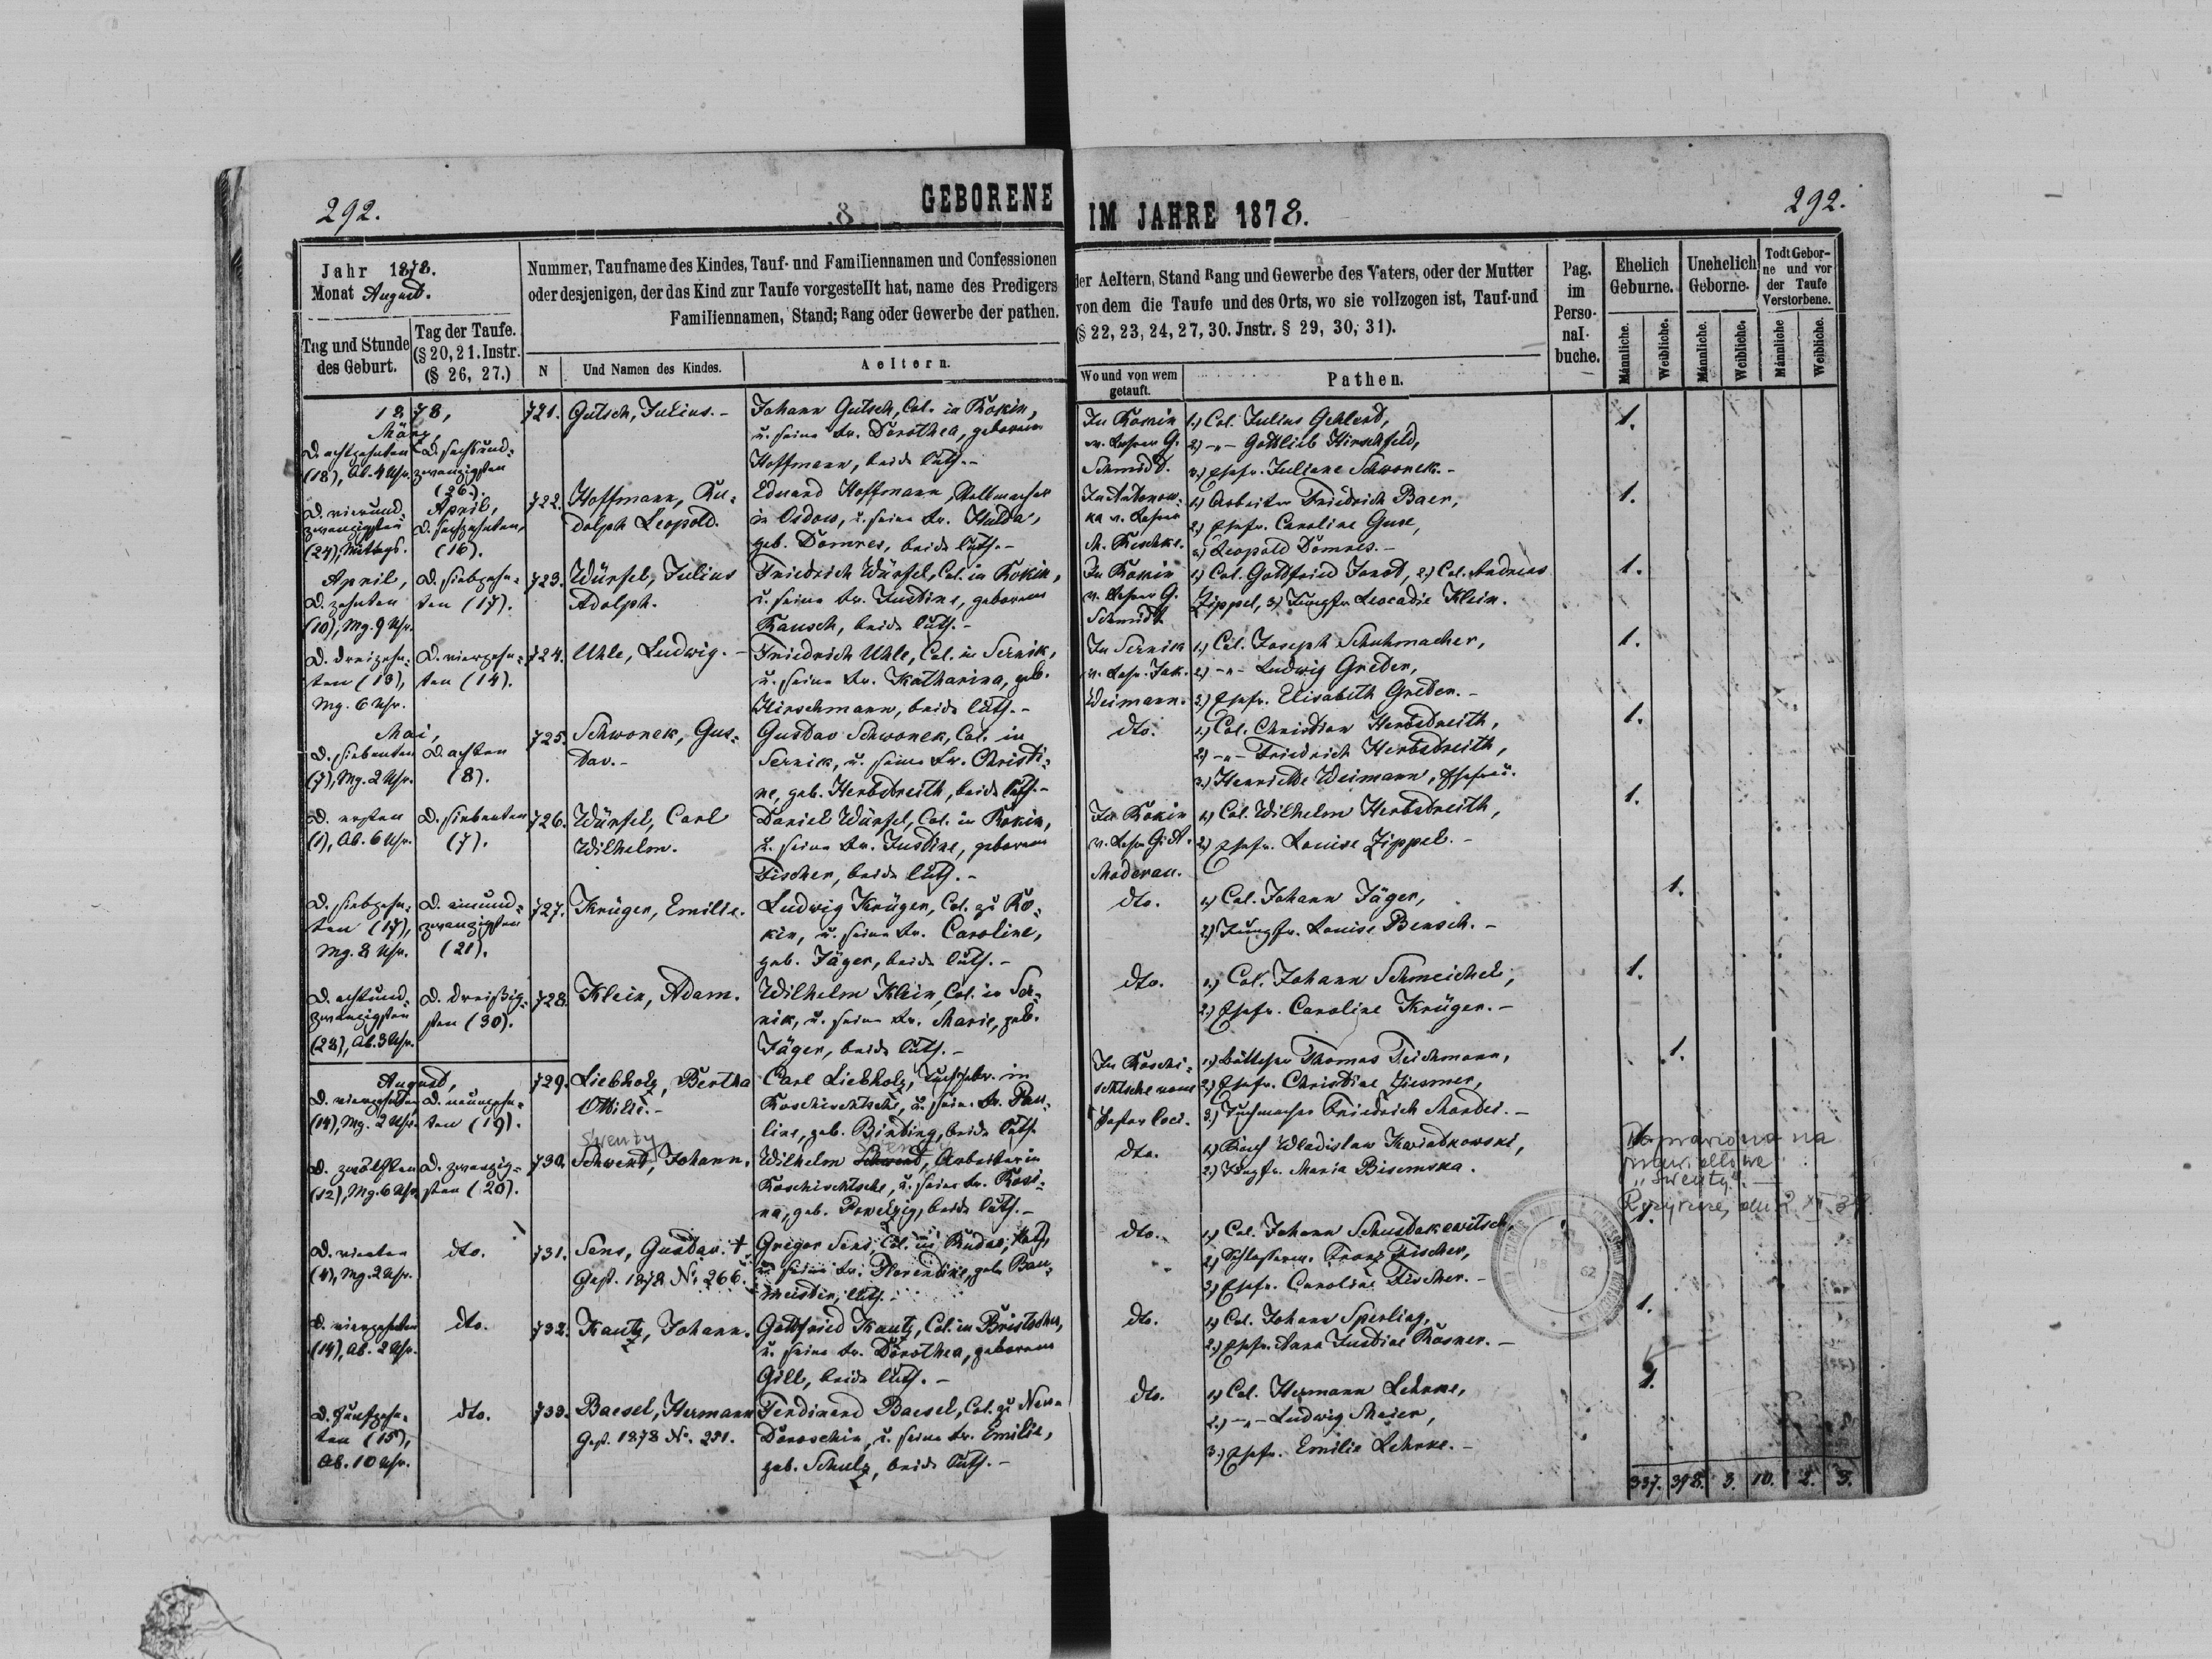 292.
8
GEBORENE
IM JAHRE 1878.
292.
Jahr 1878.
Monat August.
Tag und Stunde
des Geburt.
Tag der Taufe.
(§ 20, 21. Instr.
(§ 26, 27.)
Nummer, Taufname des Kindes, Tauf- und Familiennamen und Confessionen
oder desjenigen, der das Kind zur Taufe vorgestellt hat, name des Predigers
Familiennamen, Stand; Rang oder Gewerbe der pathen.
N
Und Namen des Kindes.
Aeltern.
der Aeltern, Stand Rang und Gewerbe des Vaters, oder der Mutter
von dem die Taufe und des Orts, wo sie vollzogen ist, Tauf-und
(§ 22, 23, 24, 27, 30. Jnstr. § 29, 30, 31).
Wo und von wem
getauft.
Pathen.
Pag.
im
Perso-
nal-
buche.
Ehelich
Geburne.
Unehelich
Geborne.
Todt Gebor-
ne und vor
der Taufe
Verstorbene.
Männliche.
Weibliche.
Männliche.
Weibliche.
Männliche
Weibliche.
1878,
März,
D. achtzehnten
(18), Ab. 4 Uhr.
D. sechsund-
zwanzigsten
(26).
721.
Gutsch, Julius.-
Johann Gutsch, Col. in Rokin,
u. seine Fr. Dorothea, geborene
Hoffmann, beide luth.-
In Rokin
v. Lehrer G.
Schmidt.
1.) Col. Julius Gehlerd,
2) -"- Gottlieb Hirschfeld,
3.) Ehefr. Juliane Schwonek.-
1.
D. vierund-
zwanzigsten
(24), Mittags.
April,
D. sechzehnten,
(16).
722.
Hoffmann, Ru-
dolph Leopold.
Eduard Hoffmann,
in Osdow, u. seine Fr. Hulda,
geb. Domres, beide luth.-
In Antonow-
ka v. Lehrer
M. Reschke.
1) Arbeiter Friedrich Baer,
2) Ehefr. Caroline Guse,
3) Leopold Domres.-
1.
April,
D. zehnten
(10), Mg. 9 Uhr.
D. siebzehn-
ten (17).
723.
Würfel, Julius
Adolph.
Friedrich Würfel, Col. in Rokin,
u. seine Fr. Justine, geborene
Rausch, beide luth.-
In Rokin
v. Lehrer G.
Schmidt.
1) Col. Gottfried Jarod, 2) Col. Andreas
Zippel, 3) Jungfr. Leocadie Klein.
1.
D. dreizehn-
ten (13),
Mg. 6 Uhr.
D. vierzehn-
ten (14).
724.
Uhle, Ludwig.-
Friedrich Uhle, Col. in Sernik,
u. seine Fr. Katharina, geb.
Hirschmann, beide luth.-
In Sernik
v. Lehr. Jak.
Weimann.
1.) Col. Joseph Schuhmacher,
2) -"- Ludwig Greder,
3.) Ehefr. Elisabeth Greder.-
1.
Mai,
D. siebenten
(7), Mg. 2 Uhr.
D. achten
(8).
725.
Schwonek, Gus-
tav.-
Gustav Schwonek, Col. in
Sernik, u. seine Fr. Christi-
ne, geb. Herbstreith, beide luth.-
dto.
1.) Col. Christian Herbstreith,
2) -"- Friedrich Herbstreith,
3.) Henriette Weimann, Ehefrau.
1.
D. ersten
(1), Ab. 6 Uhr.
D. siebenten
(7).
726.
Würfel, Carl
Wilhelm.
Daniel Würfel, Col. in Rokin,
u. seine Fr. Justine, geborene
Fischer, beide luth.-
In Rokin
v. Lehr.
Moderau.
1) Col. Wilhelm Herbstreith,
2) Ehefr. Louise Zippel.-
1.
D. siebzehn-
ten (17),
Mg. 8 Uhr.
D. einund-
zwanzigsten
(21).
727.
Krüger, Emilie.
Ludwig Krüger, Col. zu Ro-
kin, u. seine Fr. Caroline,
geb. Jäger, beide luth.-
dto.
1) Col. Johann Jäger,
2) Jungfr. Louise Bensch.-
1.
D. achtund-
zwanzigsten
(28), Ab. 3 Uhr.
D. dreißig-
sten (30).
728.
Klein, Adam.
Wilhelm Klein, Col. in Ser-
nik, u. seine Fr. Marie, geb.
Jäger, beide luth.-
dto.
1.) Col. Johann Schmeichel,
2.) Ehefr. Caroline Krüger.-
1.
August,
D. vierzehnten
(14), Mg. 2 Uhr.
D. neunzehn-
ten (19).
729.
Liebholz, Bertha
Ottilie.-
Carl Liebholz, in
Roschischtsche, u. seine Fr. Pau-
line, geb. Binding, beide luth.
In Roschi-
schtsche vom
Pastor loci.
1.) Böttcher Thomas Teichmann,
2) Ehefr. Christine Ziesmer,
3) Tuchmacher Friedrich Mandei.-
1.
D. zwölften
(12), Mg. 6 Uhr.
D. zwanzig-
sten (20).
730.
Swenty
Schwent, Johann.
Swenty
Wilhelm Schwent, Arbeiter in
Roschischtsche, u. seine Fr. Rosi-
na, geb. Powelzig, beide luth.-
dto.
1.) Wladislaw Kwiatkowski,
2.) Jungfr. Maria Bisemska.
Poprawiono na
"Swenty".
Rożyszcze, dn. 2 XI 37.
D. vierten
(4), Mg. 2 Uhr.
dto.
731.
Sens, Gustav. †
Gest. 1878 No. 266.
Gregor Sens, Col. in Rudne, kath,
u. seine Fr. Florentine, geb. Bau-
meister, luth.-
dto.
1.) Col. Johann Schustakewitsch,
2.) Schlosserm. Franz Fischer,
3.) Ehefr. Caroline Fischer.-
1.
18 62
D. vierzehnten
(14), Ab. 2 Uhr.
dto.
732.
Kautz, Johann.
Gottfried Kautz, Col. in Bristotschn,
u. seine Fr. Dorothea, geborene
Gill, beide luth.-
dto.
1.) Col. Johann Sperling,
2.) Ehefr. Anna Justine Rosner.-
1.
D. fünfzehn-
ten (15),
Ab. 10 Uhr.
dto.
733.
Baesel, Hermann
Gest. 1878 No. 291.
Ferdinand Baesel, Col. zu Neu-
Doroschin, u. seine Fr. Emilie,
geb. Schulz, beide luth.-
dto.
1.) Col. Hermann Lehrke,
2.) -"- Ludwig Meier,
3.) Ehefr. Emilie Lehrke.-
1.
337. 398. 3. 10. 2. 3.